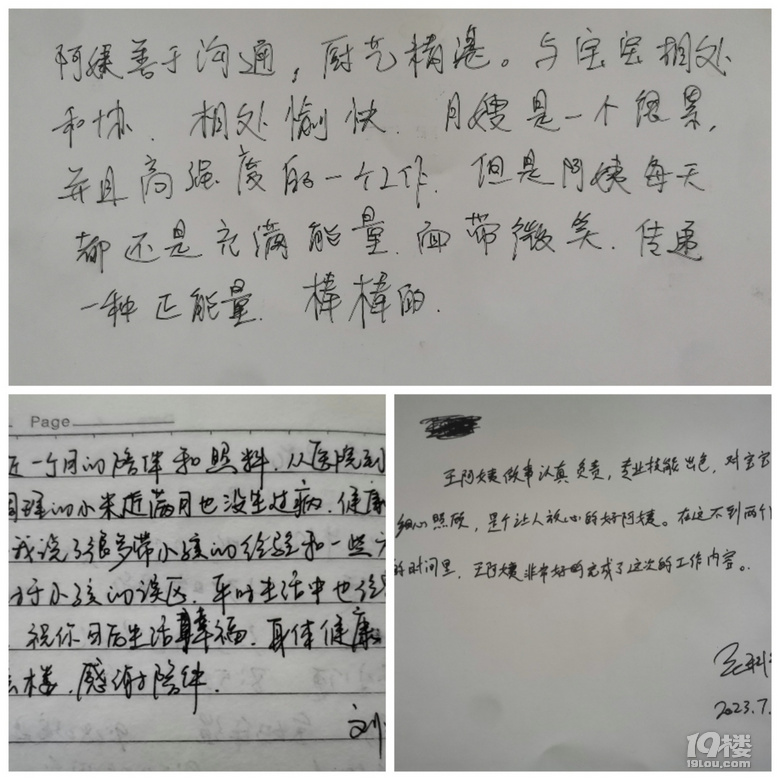 阿姨善于沟通，厨艺精湛。与宝宝相处
和协．相处愉快．月嫂是一个很累，
并且高强度的一个工作．但是阿姨每天
都还是充满能量．面带微笑．传递
一种正能量．棒棒的．
Page
近一个月的陪伴和照料．从医院到
的小米近满月也没生过病．健康
我说了很多带小孩的经验和一些
于小孩的误区．平时生活中也
祝你日后生活幸福．身体健康
么样．感谢陪伴．
刘
王阿姨做事认真负责，专业技能出色，对宝宝
细心照顾，是个让人放心的好阿姨。在这不到两个
的时间里，王阿姨非常好的完成了这次的工作内容。
2023.7.
19楼
19lou.com